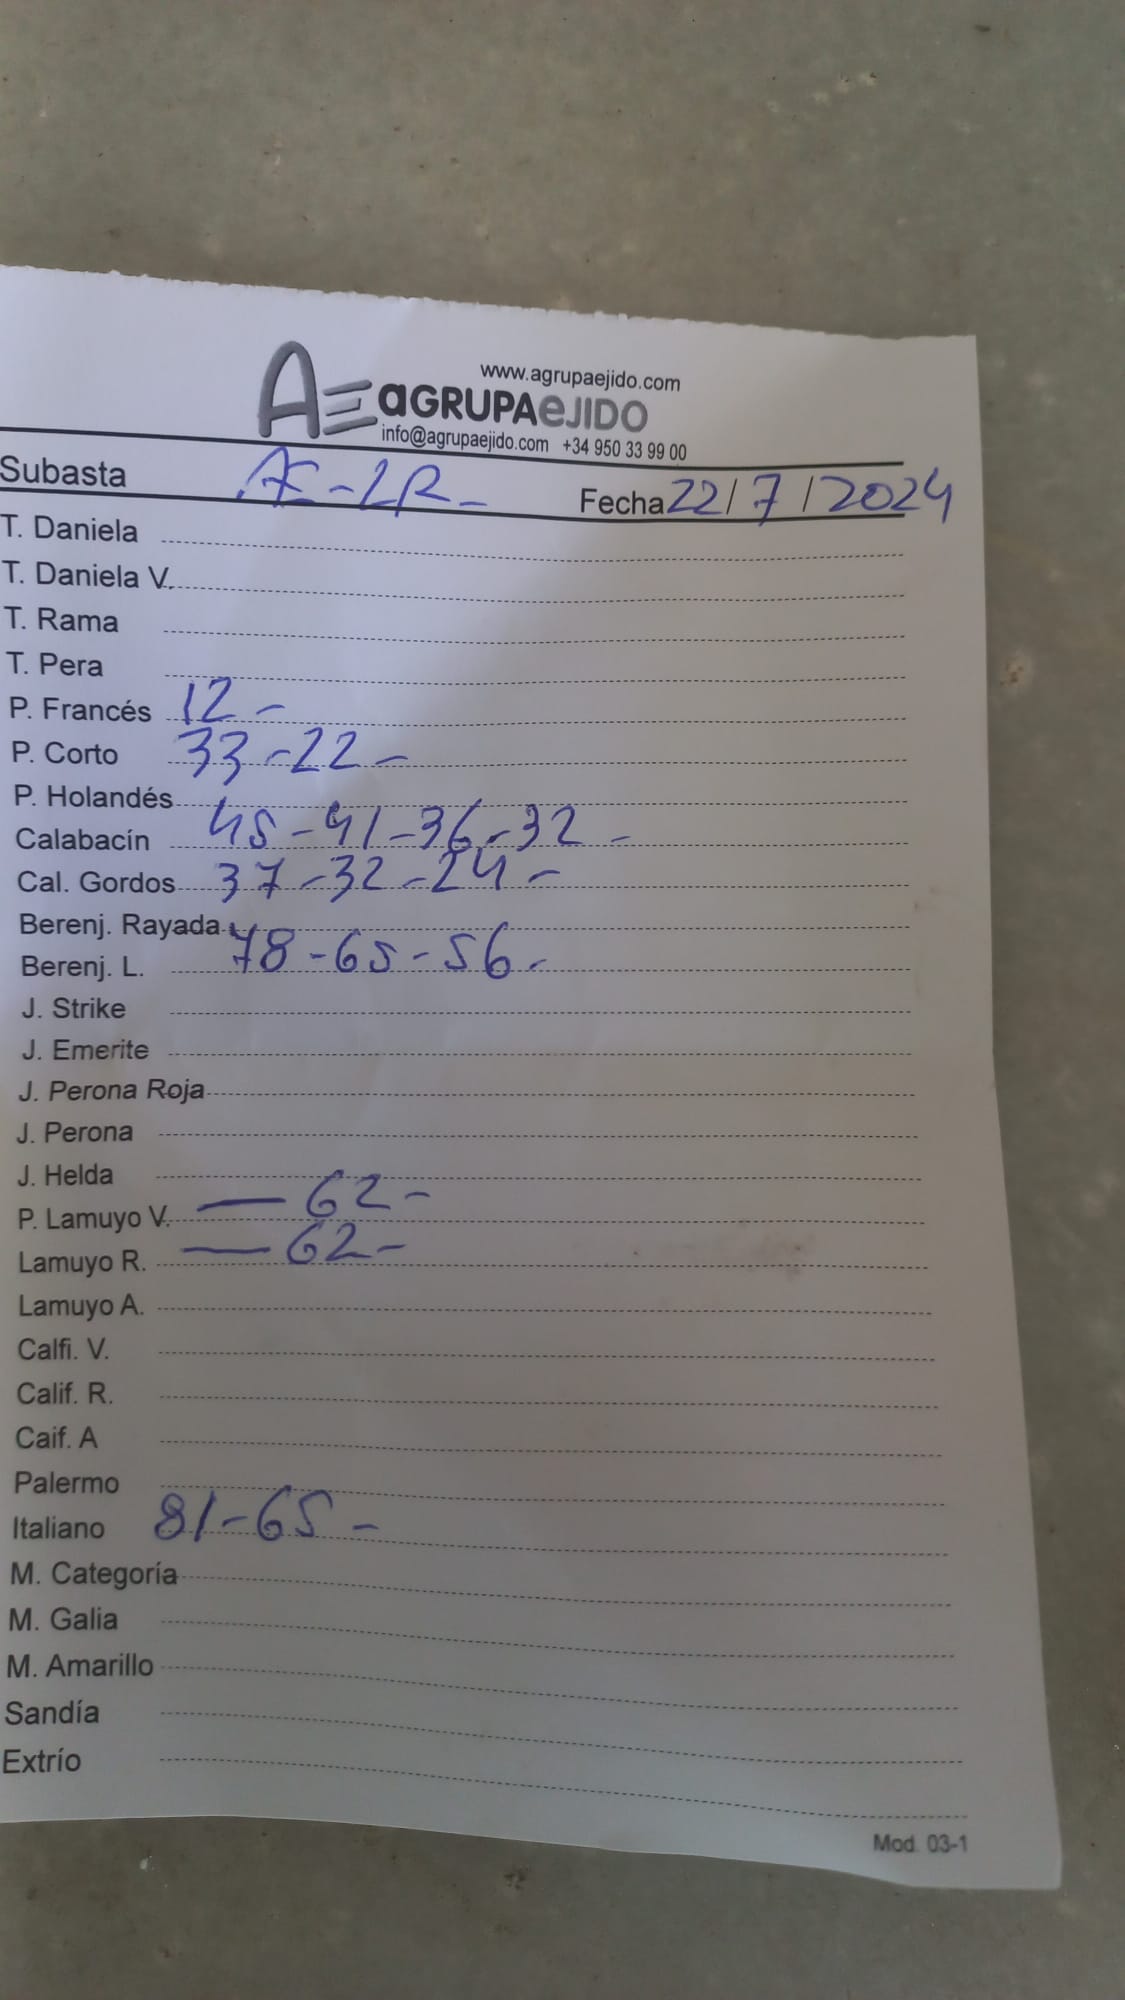 www.agrupaejido.com
AE aGRUPAeJIDO
info@agrupaejido.com +34 950 33 99 00
Subasta AE-LR- Fecha 22/7/2024
T. Daniela
T. Daniela V.
T. Rama
T. Pera
P. Francés 12-
P. Corto 33-22-
P. Holandés
Calabacín 45-41-36-32-
Cal. Gordos 37-32-24-
Berenj. Rayada
Berenj. L. 78-65-56-
J. Strike
J. Emerite
J. Perona Roja
J. Perona
J. Helda
P. Lamuyo V. — 62-
Lamuyo R. — 62-
Lamuyo A.
Calfi. V.
Calif. R.
Caif. A
Palermo
Italiano 81-65-
M. Categoría
M. Galia
M. Amarillo
Sandía
Extrío
Mod. 03-1